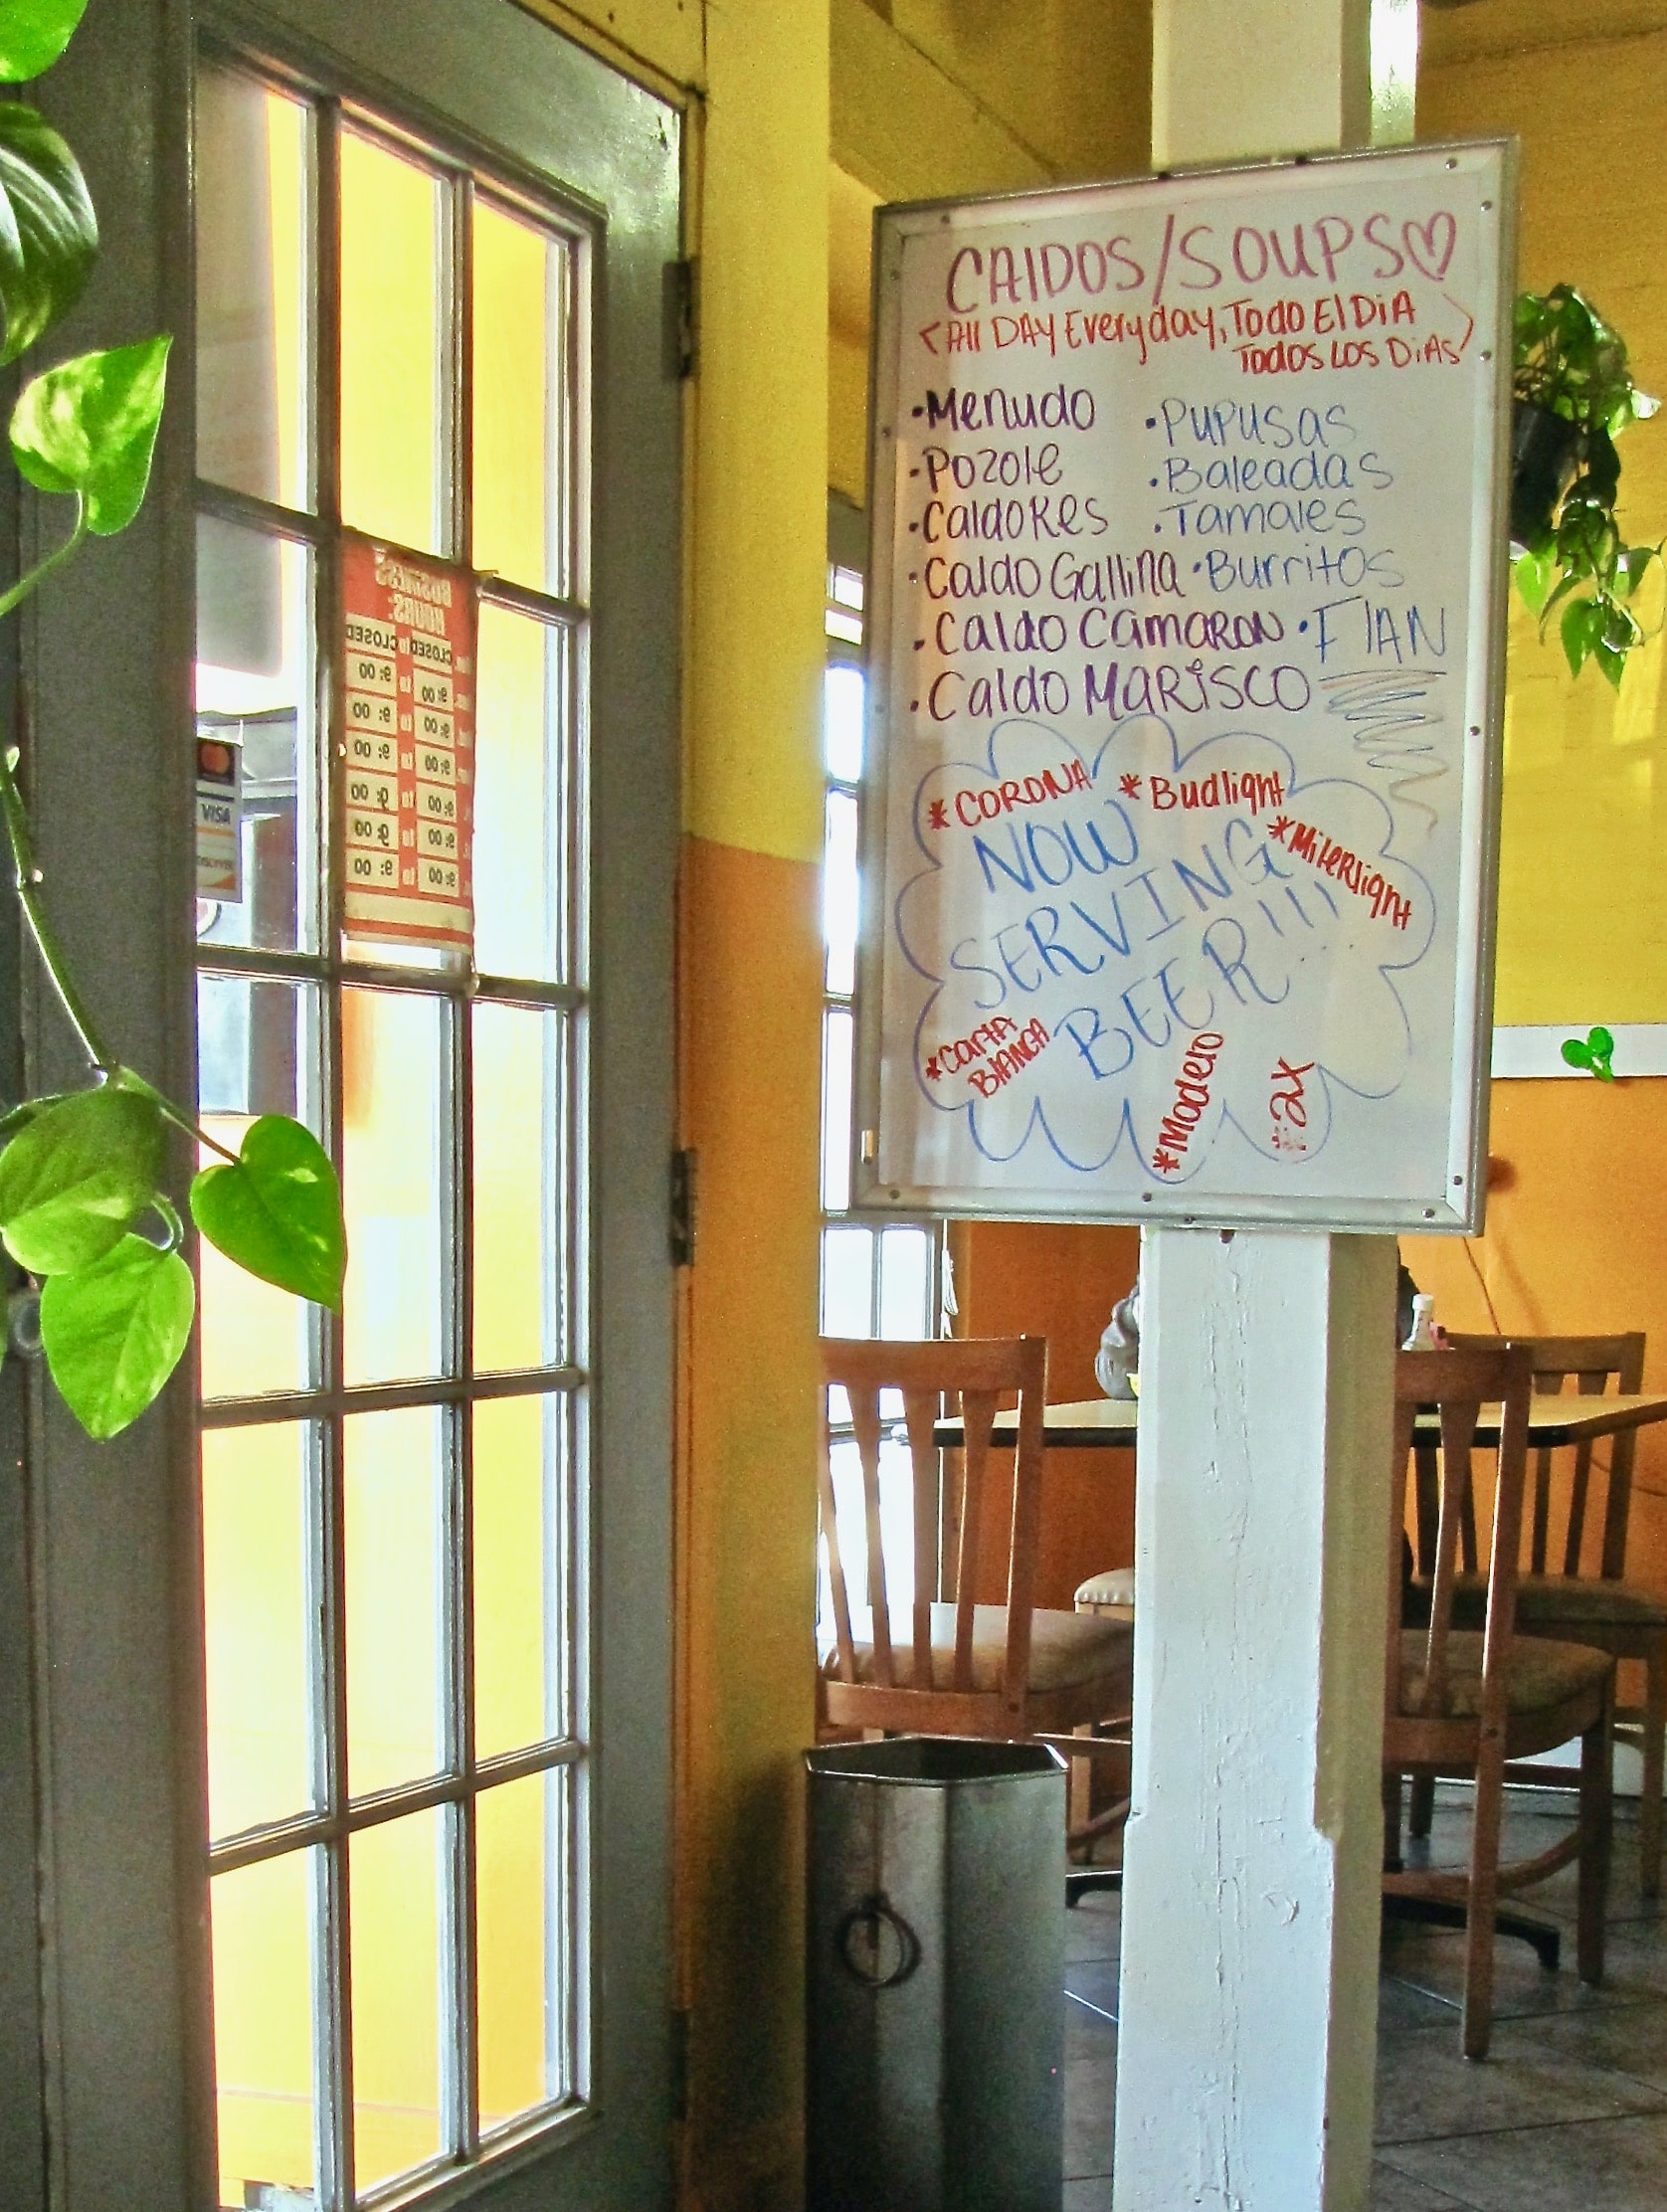 CAldOS/SOUPS
<All DAY Everyday, Todo El DiA
Todos Los DiAs>
•Menudo
•Pozole
•Caldo Res
•Caldo Gallina
•Caldo Camaron
•Caldo MARiSCO
•Pupusas
•Baleadas
•Tamales
•Burritos
•FlAN
*CORONA
*Budlight
*MilerLight
NOW
SERVING
BEER!!!
*Carta
BlANCA
*Modelo
*2X
BUSINESS
HOURS:
CLOSED to CLOSED
9:00 to 9:00
9:00 to 9:00
9:00 to 9:00
9:00 to 9:00
9:00 to 9:00
9:00 to 9:00
VISA